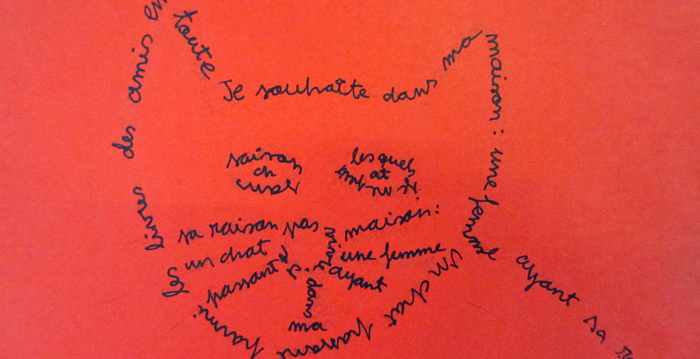 Je souhaite dans ma
maison : une femme
ayant sa
un chat passant
parmi
les
livres
des amis en
toute
saison
lesquels
sa raison
pas
un chat
passant
maison :
une femme
ayant
dans
ma